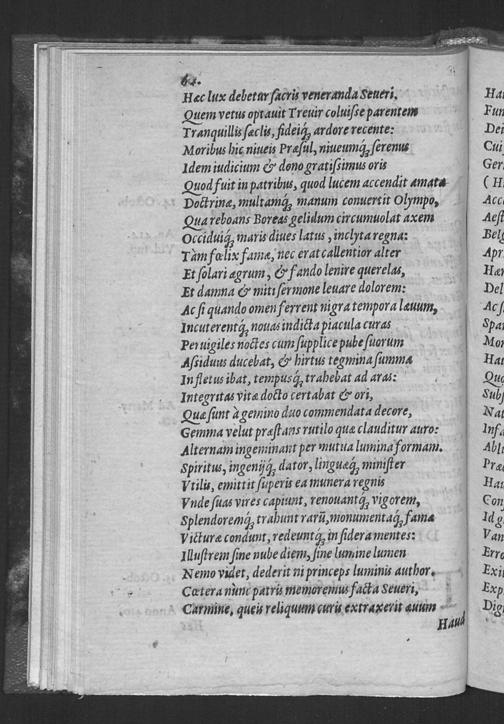 62.
Hæc lux debetur ſacris veneranda Seueri,
Quem vetus optauit Treuir coluiſse parentem
Tranquillis ſæclis, fideiq́ꝫ ardore recente:
Moribus hic niueis Præſul, niueumq́ꝫ ſerenus
Idem iudicium & dono gratiſſimus oris
Quod fuit in patribus, quod lucem accendit amata
Doctrinæ, multamq́ꝫ manum conuertit Olympo,
Qua reboans Boreas gelidum circumuolat axem
Occiduiq́ꝫ maris diues latus, inclyta regna:
Tàm fœlix famæ, nec erat callentior alter
Et ſolari ægrum, & fando lenire querelas,
Et damna & miti ſermone leuare dolorem:
Ac ſi quando omen ferrent nigra tempora læuum,
Incuterentq́ꝫ nouas indicta piacula curas
Peruigiles noctes cum ſupplice pube ſuorum
Aſſiduus ducebat, & hirtus tegmina ſumma
In fletus ibat, tempusq́ꝫ trahebat ad aras:
Integritas vitæ docto certabat & ori,
Quæ ſunt à gemino duo commendata decore,
Gemma velut præſtans rutilo quæ clauditur auro:
Alternam ingeminant per mutua lumina formam.
Spiritus, ingenijq́ꝫ dator, linguæq́ꝫ miniſter
Vtilis, emittit ſuperis ea munera regnis
Vnde ſuas vires capiunt, renouantq́ꝫ vigorem,
Splendoremq́ꝫ trahunt rarũ, monumentaq́ꝫ fama
Victuræ condunt, redeuntq́ꝫ in ſidera mentes:
Illuſtrem ſine nube diem, ſine lumine lumen
Nemo videt, dederit ni princeps luminis author.
Cœtera nunc patris memoremus facta Seueri,
Carmine, queis reliquum curis extraxerit æuum
Haud
Hau
Fun
Dei
Cui
Ger
(H
Acc
Aeſt
Belg
Apr
Hæ
Del
Ac ſ
Spa
Mor
Hau
Quo
Subſ
Nat
Infa
Ablu
Præ
Hau
Conſ
Id g
Van
Erro
Exit
Exp
Dig